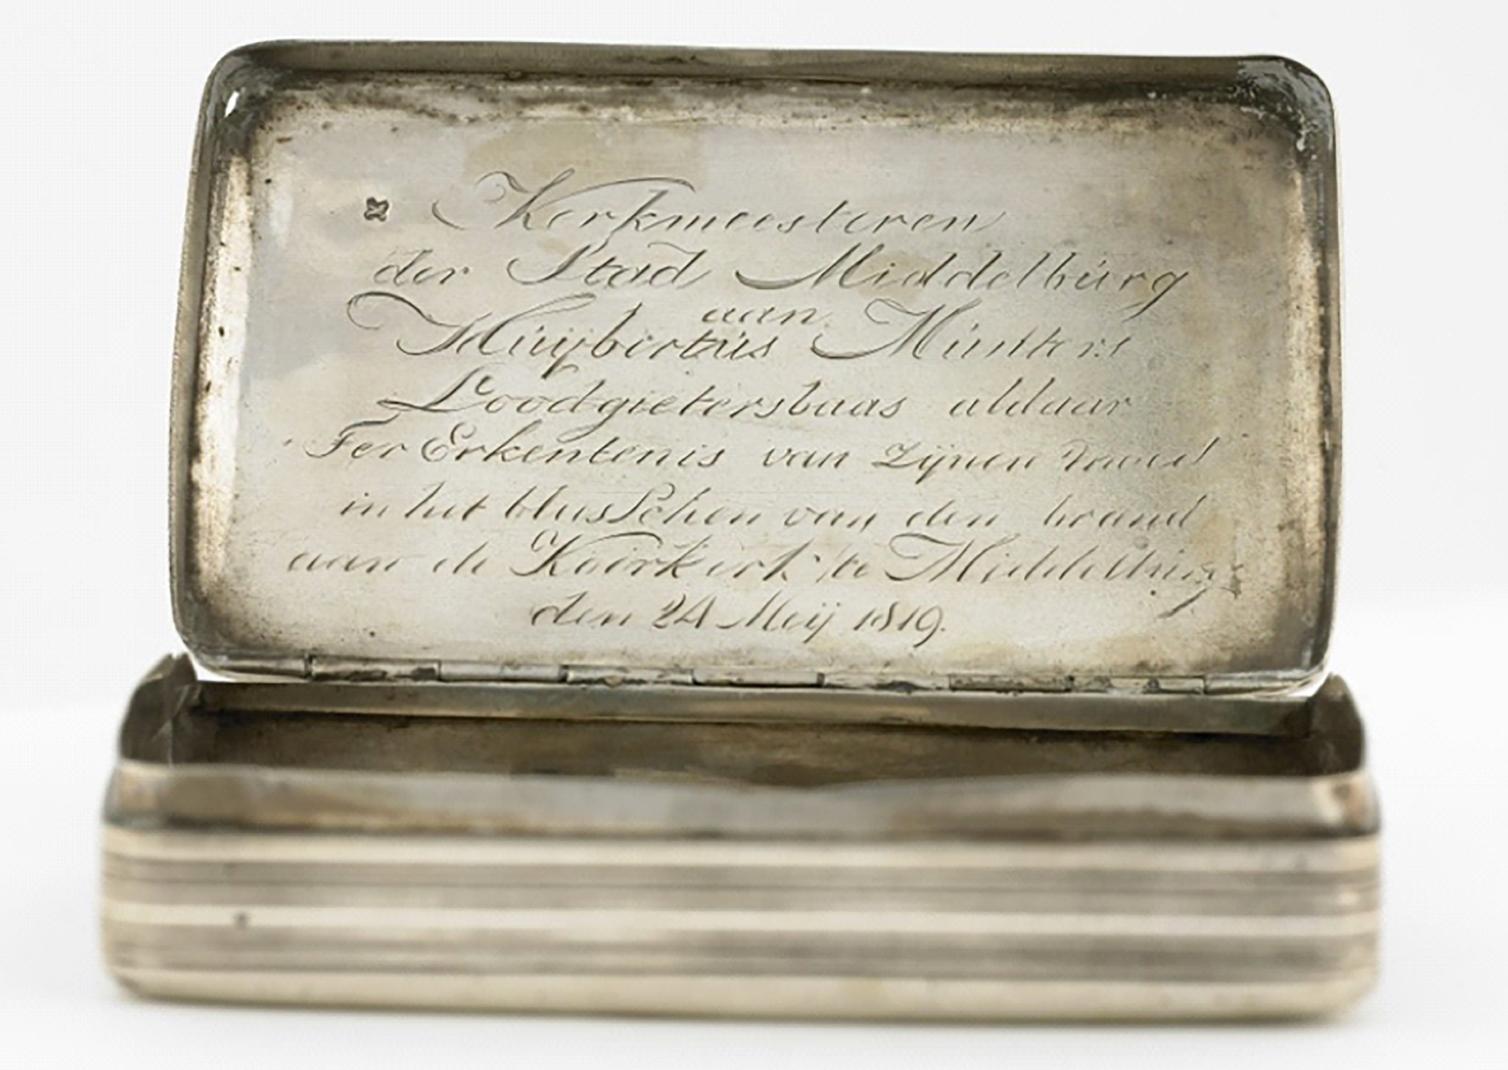 Kerkmeesteren
der Stad Middelburg
aan
Huijbertus
Loodgietersbaas aldaar
Ter Erkentenis van zijnen moed
in het blusschen van den brand
aan de Koorkerk te Middelburg
den 24 Meij 1819.